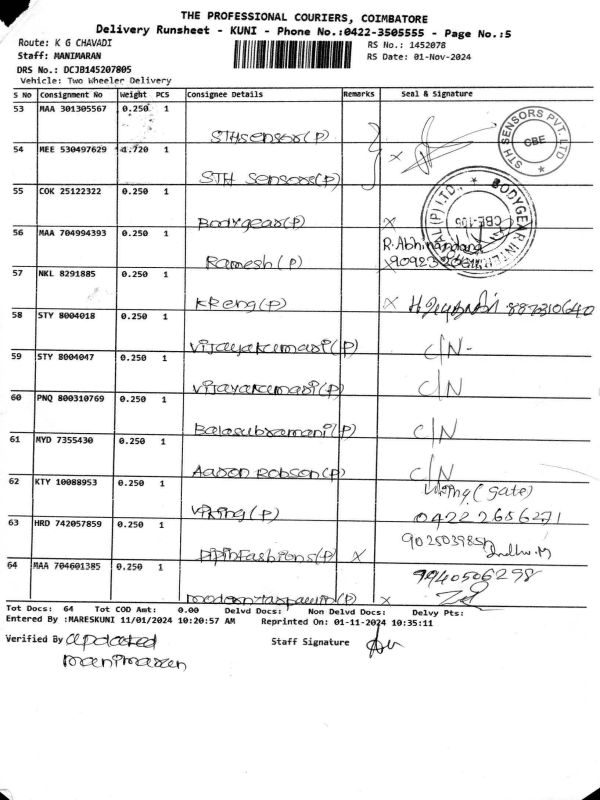 THE PROFESSIONAL COURIERS, COIMBATORE
Delivery Runsheet - KUNI - Phone No.:0422-3505555 - Page No.:5
Route: K G CHAVADI
RS No.: 1452078
Staff: MANIMARAN
RS Date: 01-Nov-2024
DRS No.: DCJB145207805
Vehicle: Two Wheeler Delivery
S No Consignment No Weight PCS Consignee Details Remarks Seal & Signature
53 MAA 301305567 0.250 1
STHsensor(P)
STH SENSORS PVT. LTD
CBE
54 MEE 530497629 1.720 1
STH sensors(P) X
55 COK 25122322 0.250 1
Bodygear(P) X
CBE-105
56 MAA 704994393 0.250 1
R.Abhinandana
Ramesh(P)
57 NKL 8291885 0.250 1
KReng(P) X
58 STY 8004018 0.250 1
Vijayakumari(P) C/N-
59 STY 8004047 0.250 1
Vijayakumari(P) C/N
60 PNQ 800310769 0.250 1
Balasubramani(P) C/N
61 MYD 7355430 0.250 1
Aaron Robson(P) C/N
62 KTY 10088953 0.250 1
Viking(gate)
Viking(P) 0422 2656271
63 HRD 742057859 0.250 1
Pipinfashions(P) X
64 MAA 704601385 0.250 1
9940506298
X
Tot Docs: 64 Tot COD Amt: 0.00 Delvd Docs: Non Delvd Docs: Delvy Pts:
Entered By :MARESKUNI 11/01/2024 10:20:57 AM Reprinted On: 01-11-2024 10:35:11
Verified By updated
Staff Signature
manimaran